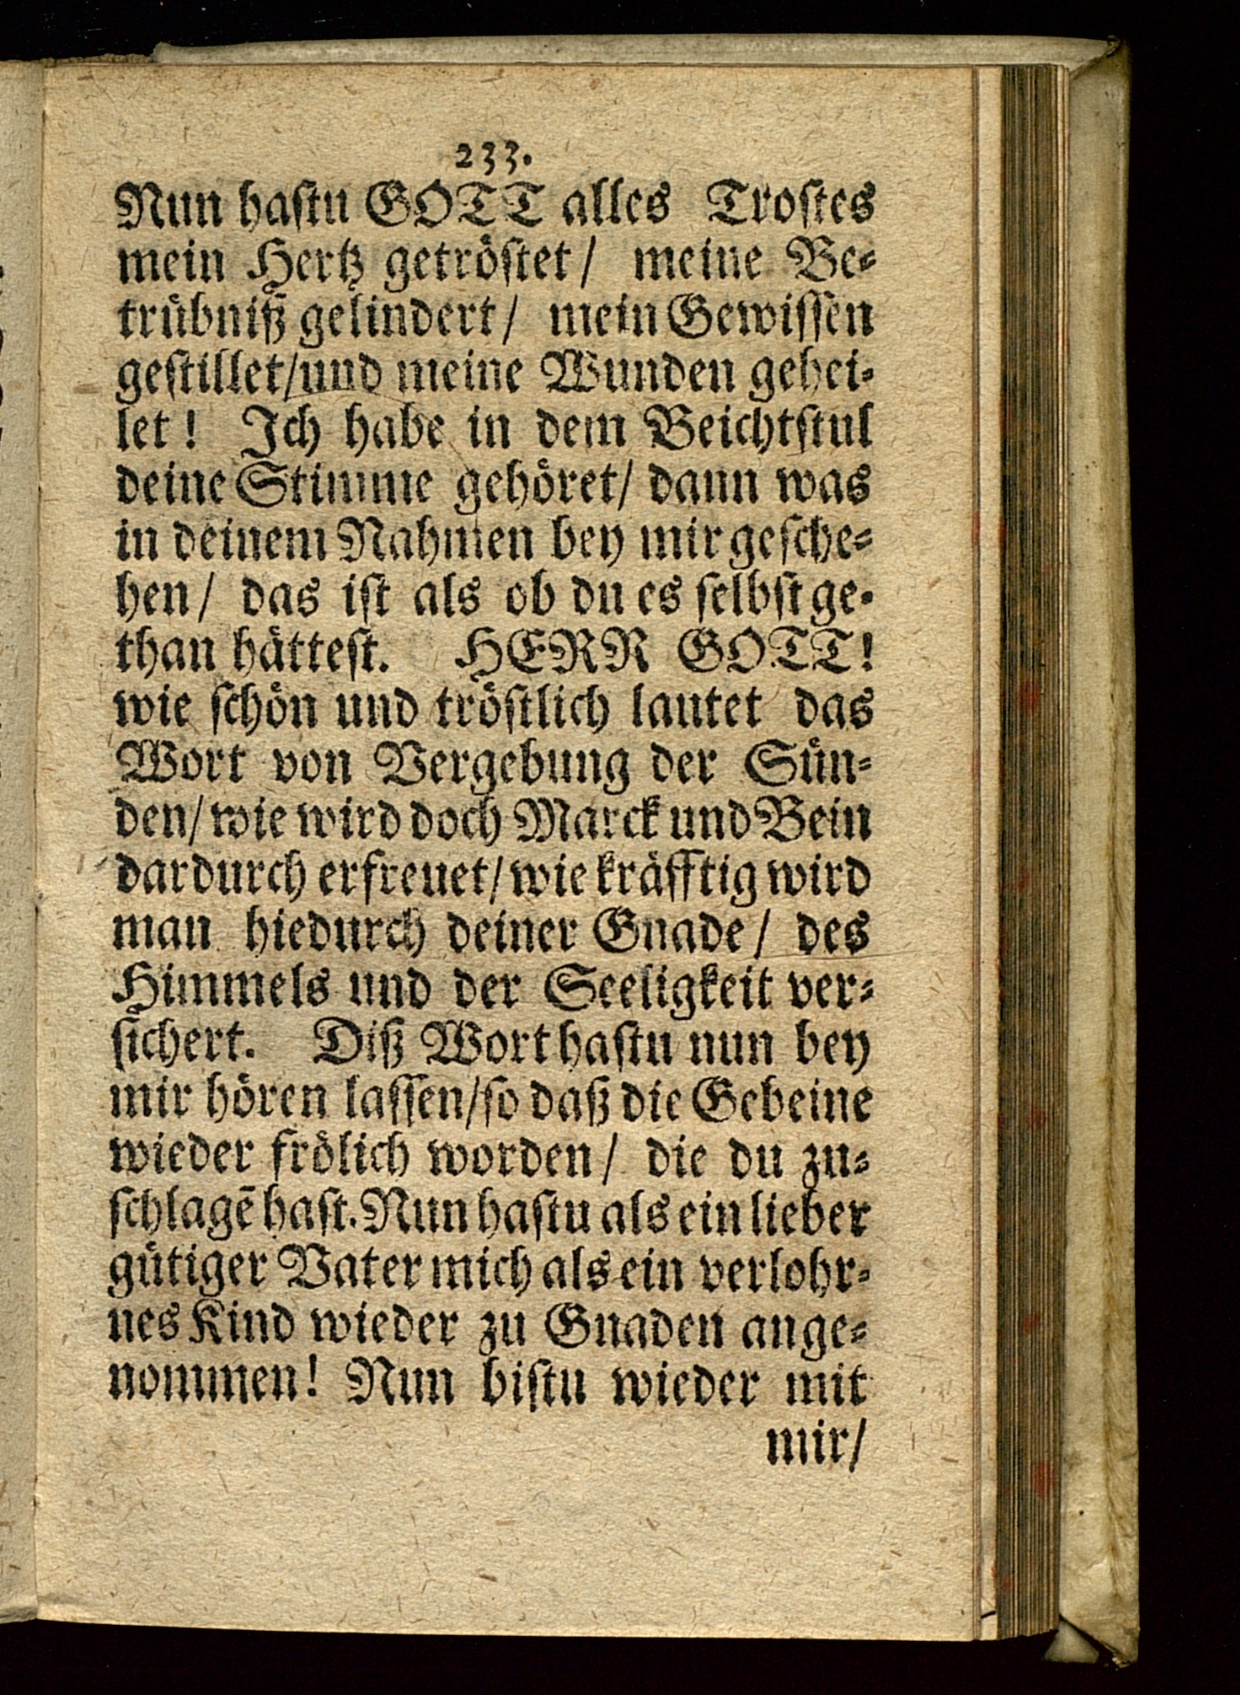 233.
Nun hastu GOTT alles Trostes
mein Hertz getröstet/ meine Be-
trübniß gelindert/ mein Gewissen
gestillet/und meine Wunden gehei-
let! Ich habe in dem Beichtstul
deine Stimme gehöret/ dann was
in deinem Nahmen bey mir gesche-
hen/ das ist als ob du es selbst ge-
than hättest. HERR GOTT!
wie schön und tröstlich lautet das
Wort von Vergebung der Sün-
den/ wie wird doch Marck und Bein
dardurch erfreuet/ wie kräfftig wird
man hiedurch deiner Gnade/ des
Himmels und der Seeligkeit ver-
sichert. Diß Wort hastu nun bey
mir hören lassen/so daß die Gebeine
wieder frölich worden/ die du zu-
schlagē hast. Nun hastu als ein lieber
gütiger Vater mich als ein verlohr-
nes Kind wieder zu Gnaden ange-
nommen! Nun bistu wieder mit
mir/